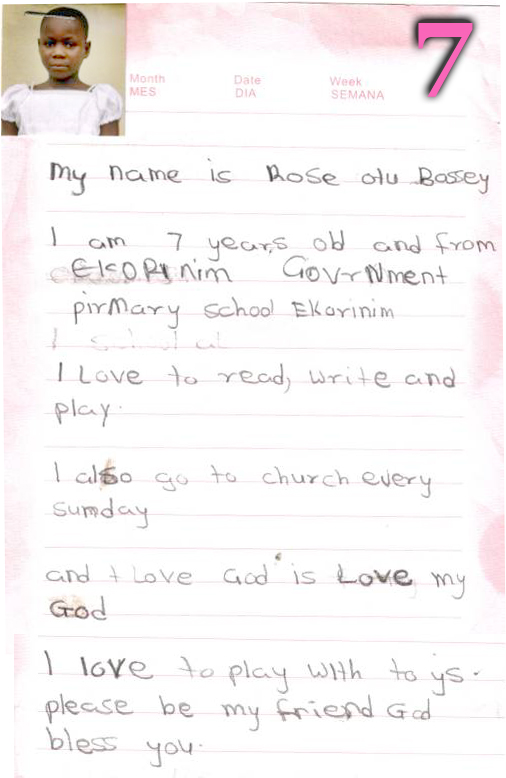 7
Month Date Week
MES DIA SEMANA
My name is Rose otu Bassey
I am 7 years old and from
EkORinim GovrNment
pirMary school Ekorinim
I Love to read, write and
play.
I also go to church every
sumday
and I Love God is Love my
God
I love to play with to ys.
please be my friend God
bless you.